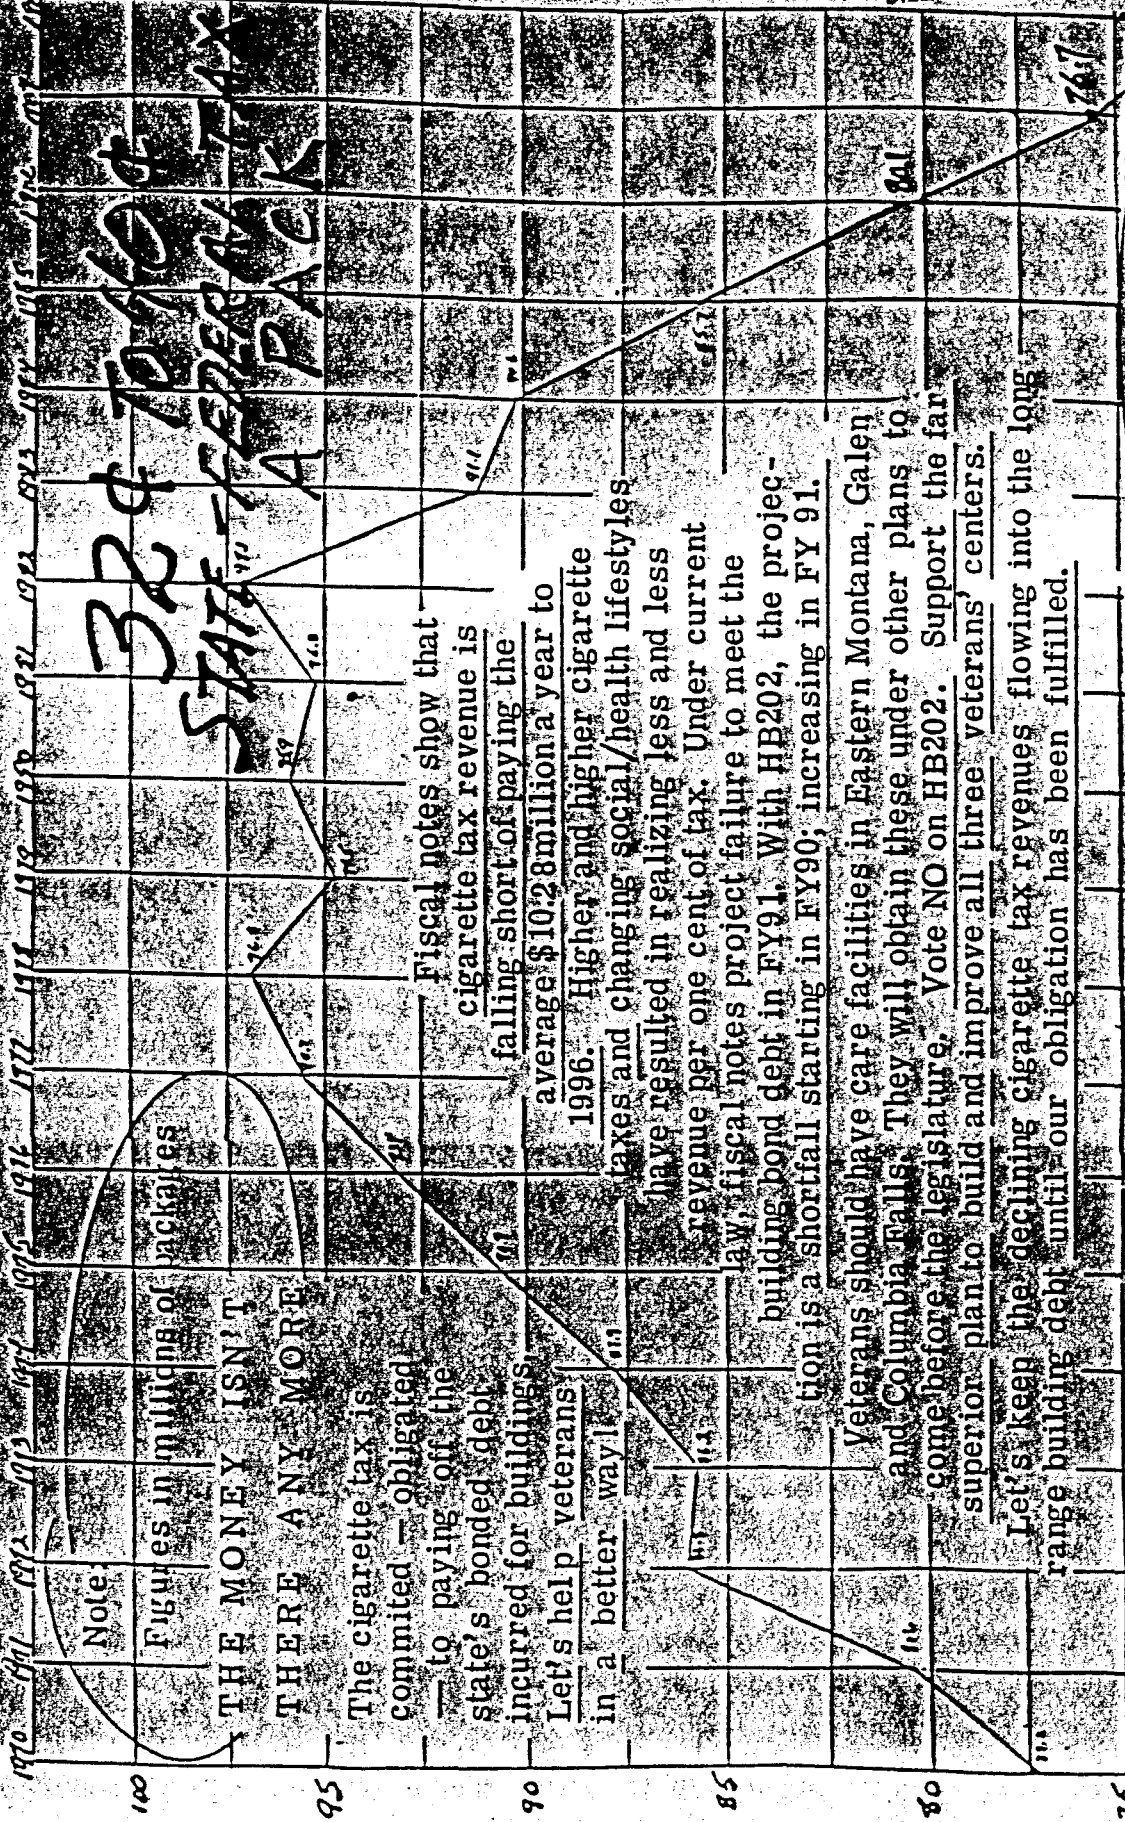 1970 1971 1972 1973 1974 1975 1976 1977 1978 1979 1980 1981 1982 1983 1984 1985
100
95
90
85
80
Note:
Figures in millions of packages
THE MONEY ISN'T
THERE ANY MORE
The cigarette tax is
commited — obligated
— to paying off the
state's bonded debt
incurred for buildings.
Let's help veterans
in a better way!
32¢ TO 40¢
STATE-FEDERAL TAX
A PACK
Fiscal notes show that
cigarette tax revenue is
falling short of paying the
average $10.28million a year to
1996. Higher and higher cigarette
taxes and changing social/health lifestyles
have resulted in realizing less and less
revenue per one cent of tax. Under current
law, fiscal notes project failure to meet the
building bond debt in FY91. With HB202, the projec-
tion is a shortfall starting in FY90; increasing in FY 91.
Veterans should have care facilities in Eastern Montana, Galen
and Columbia Falls. They will obtain these under other plans to
come before the legislature. Vote NO on HB202. Support the far
superior plan to build and improve all three veterans' centers.
Let's keep the declining cigarette tax revenues flowing into the long
range building debt until our obligation has been fulfilled.
91.2
80.1
76.7